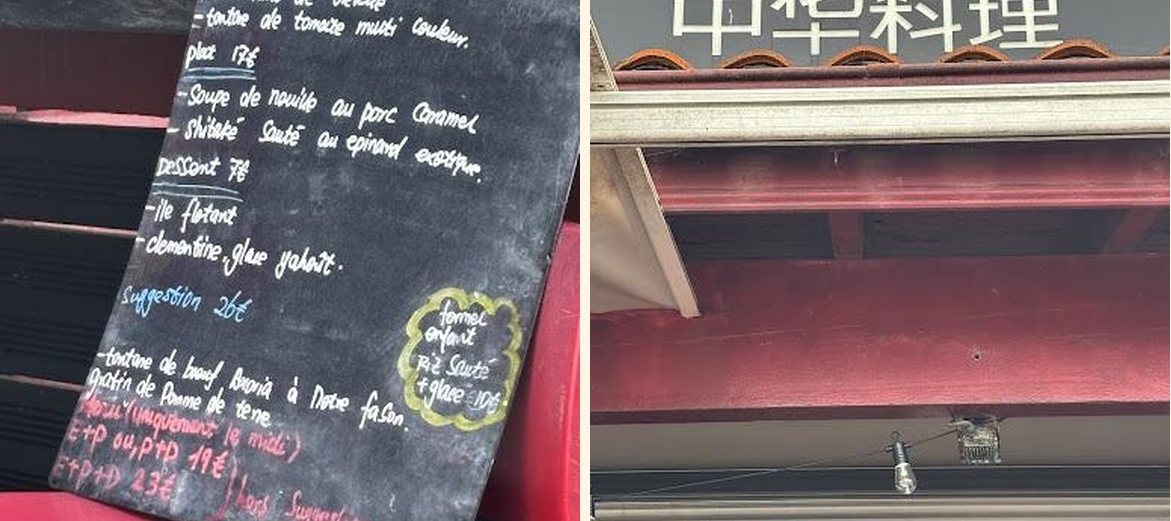 - tontane de tomate multi couleur.
plat 17€
- Soupe de nouille au porc Caramel
- shitaké Sauté au epinard exotique.
Dessert 7€
- ile flotant
- clementine, glace yahout.
Suggestion 26€
formel
enfant
Riz Sauté
+ glace 10€
- tontane de bœuf, à Notre fason.
gratin de Pomme de tene
(uniquement le midi)
E+P ou, P+D 19€
E+P+D 23€
hors
中华料理